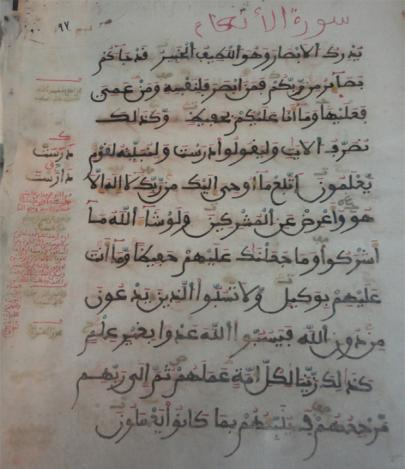 سورة الأنعام
٩٧
يدرك الابصار وهو اللطيف الخبير قد جاءكم
بصائر من ربكم فمن ابصر فلنفسه ومن عمي
فعليها وما أنا عليكم بحفيظ وكذلك
نصرف الآيات وليقولوا درست ولنبينه لقوم
يعلمون اتبع ما أوحي اليك من ربك لا اله الا
هو وأعرض عن المشركين ولو شاء الله ما
أشركوا وما جعلناك عليهم حفيظا وما أنت
عليهم بوكيل ولا تسبوا الذين يدعون
من دون الله فيسبوا الله عدوا بغير علم
كذلك زينا لكل امة عملهم ثم الى ربهم
مرجعهم فينبئهم بما كانوا يعملون
درست
دارست